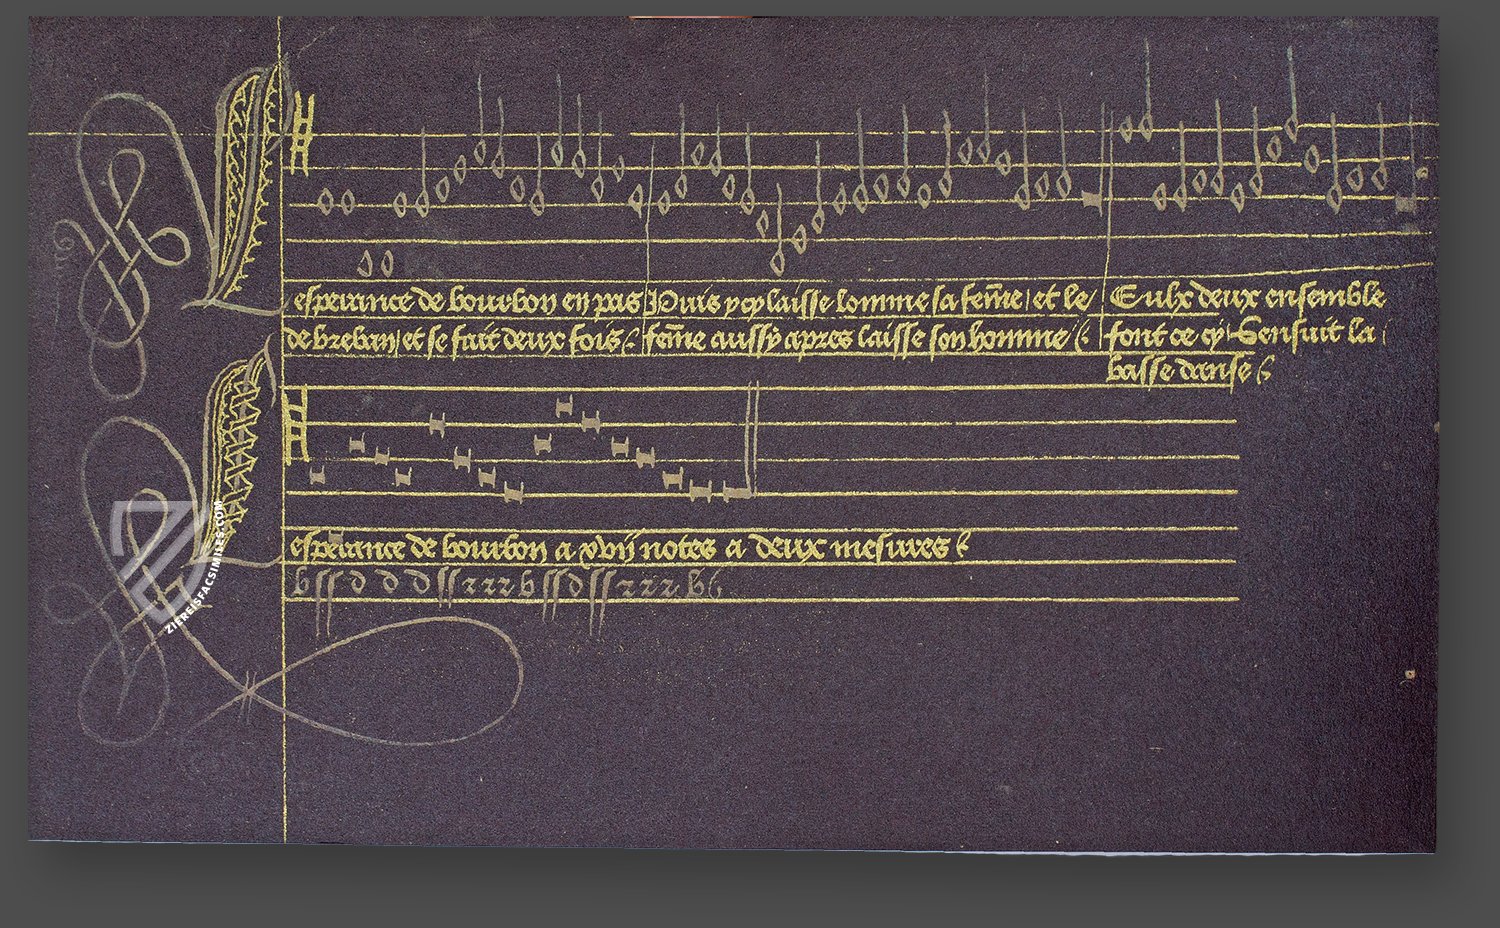 Lesperance de bourbon en pas
de breban et se fait deux fois
Puis ycy laisse lomme sa fem̄e et le
fem̄e aussy apres laisse son homme
Eulx deux ensemble
font ce cy Sensuit la
basse danse
Lesperance de bourbon a xvij notes a deux mesures
b ss d d d ss rrr b ss d ss rrr b
ZIEREISFACSIMILES.COM